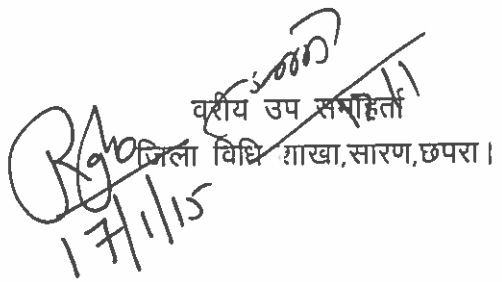 वरीय उप समाहर्ता
जिला विधि शाखा,सारण,छपरा।
17/1/15